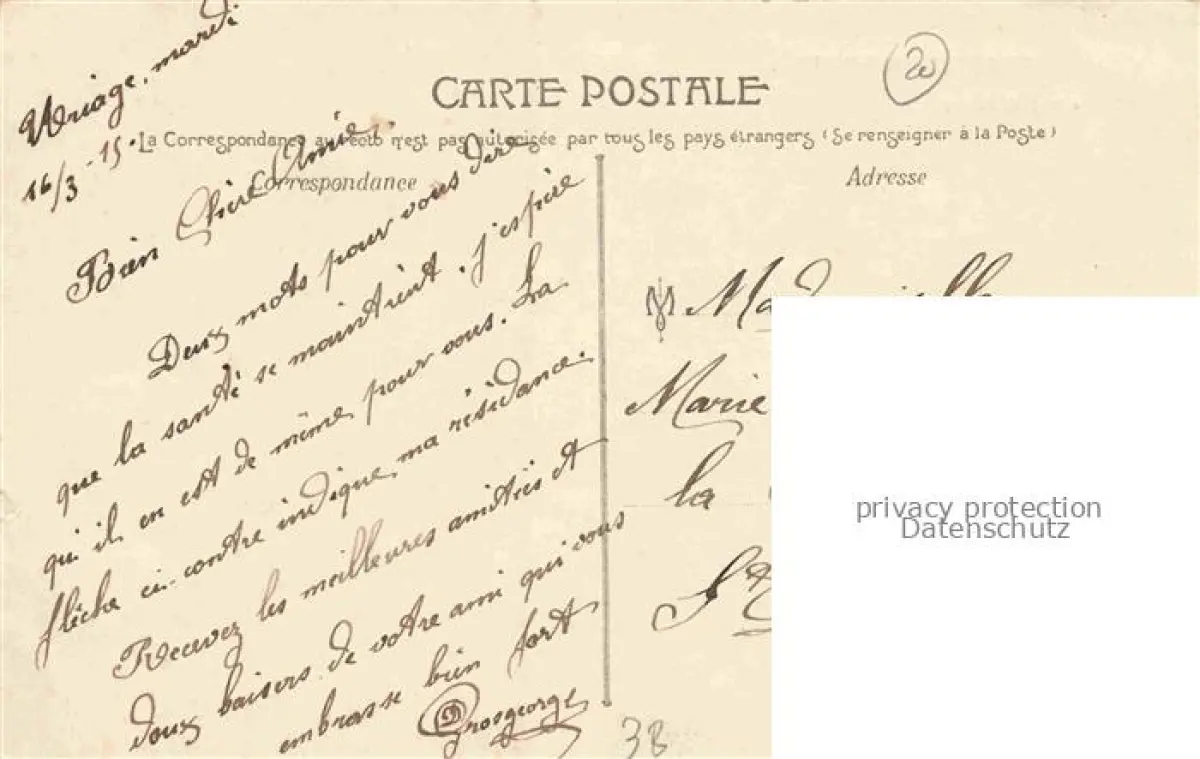 Uriage, mardi
16/3 - 15.
20
CARTE POSTALE
La Correspondance au recto n'est pas autorisée par tous les pays étrangers (Se renseigner à la Poste)
Correspondance
Adresse
Bien Chère Amie.
Deux mots pour vous dire
que la santé se maintient. j'espère
qu'il en est de même pour vous. La
flèche ci-contre indique ma résidance.
Recevez les meilleures amitiés et
doux baisers de votre ami qui vous
embrasse bien fort
Grosgeorge
38
Mademoiselle
Marie
la
St
privacy protection
Datenschutz